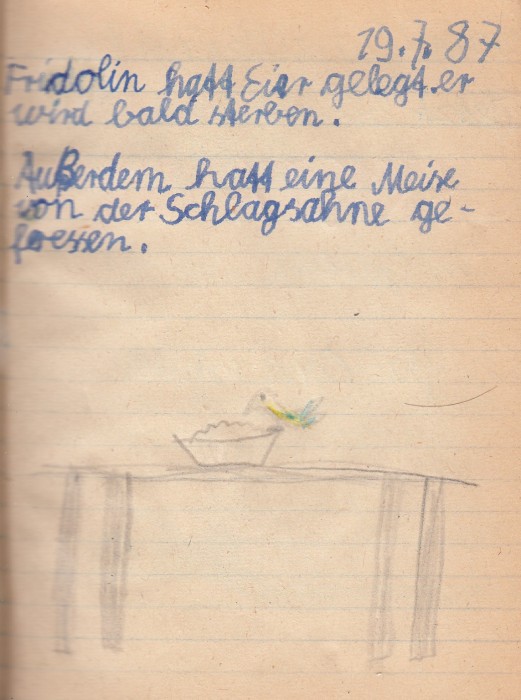 19.7.87
Fridolin hatt Eier gelegt.er
wird bald sterben.
Außerdem hatt eine Meise
von der Schlagsahne ge-
fressen.